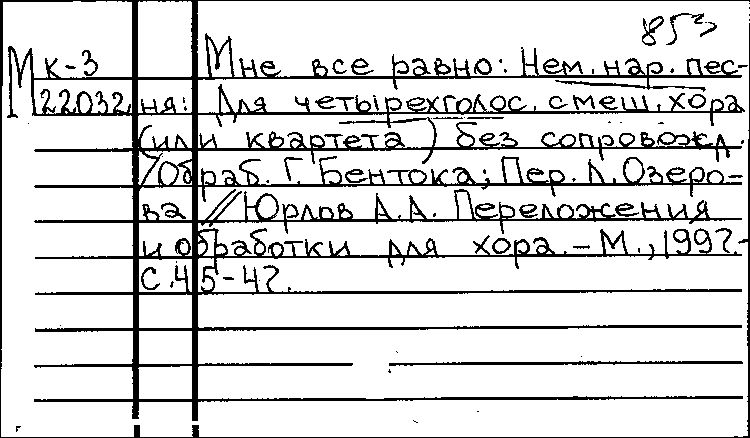 853
М к-3 Мне все равно: Нем. нар. пес-
22032 ня: Для четырехголос. смеш. хора
(или квартета) без сопровожд.
/Обраб. Г. Бентока; Пер. Л. Озеро-
ва // Юрлов А.А. Переложения
и обработки для хора. – М., 1997.-
С. 45-47.